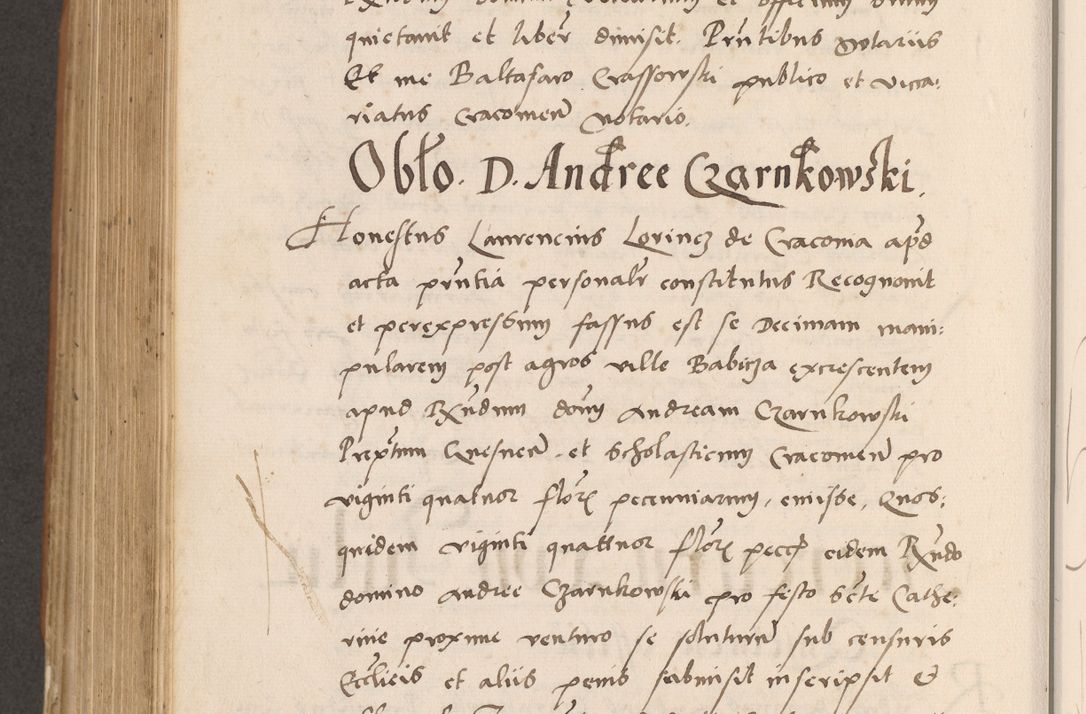 quietavit et liber dimisit. Prntibus Notariis
Et me Baltasaro Crassowski publico et vicca:
riatus Cracovien Notario.
Obło. D. Andree Czarnkowski.
Honestus Laurencius Lorincz de Cracovia apd
acta prntia personalr constitutus Recognovit
et perexpressum fassus est se Decimam mani:
pularem post agros ville Babicza excrescentem
apud Rxndum dom Andream Czarnkowski
Prepttum Gnesnen et Scholasticum Cracovien pro
viginti quatuor flor pecunniarum, emisse, Quos:
quidem viginti quattuor flor pecc eidem Rxndo
domino Andree Czarnkowski pro festo Scte Cathe:
rine proxime venturo se soluturu sub censuris
Ecclicis et aliis penis submisit inscripsit et